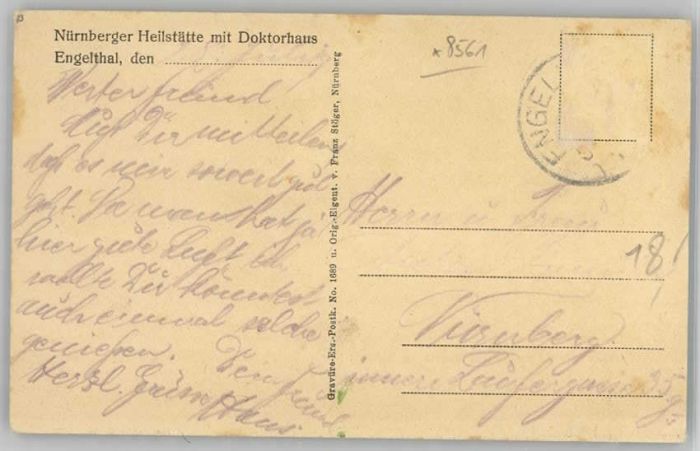 Nürnberger Heilstätte mit Doktorhaus
Engelthal, den
Werter Freund
Muß Dir mitteilen
daß es mir soweit gut
geht. Da man hat ja
hier gute Luft ich
wollte Du könntest
auch einmal solche
genießen. Dein Freund
Herzl. Grüße Hans.
Gravüre-Ers.-Postk. No. 1689 u. Orig.-Eigent. v. Franz Stöger, Nürnberg
* 8561
ENGEL
Herrn u. Frau
18!
Nürnberg.
innere Laufergasse 35